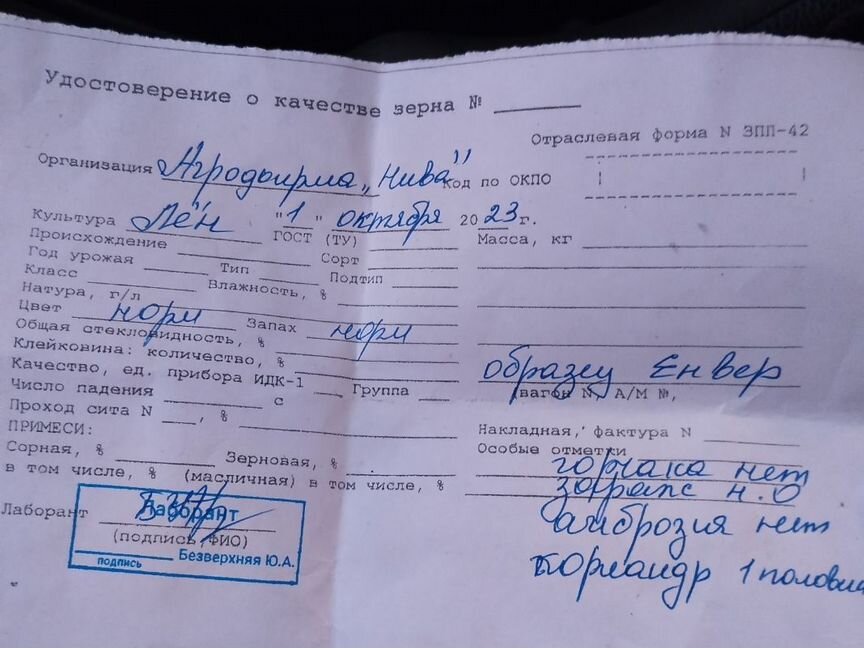 Удостоверение о качестве зерна №
Отраслевая форма N ЗПП-42
Организация Агрофирма „Нива" Код по ОКПО
Культура Лён "1" октября 2023 г.
Происхождение ГОСТ (ТУ) Масса, кг
Год урожая Тип Сорт
Класс Влажность, % Подтип
Натура, г/л
Цвет норм Запах норм
Общая стекловидность, %
Клейковина: количество, %
Качество, ед. прибора ИДК-1 Группа
образец Енвер
Число падения с (вагон N, А/М №,
Проход сита N , %
ПРИМЕСИ: Накладная, фактура N
Сорная, % Зерновая, % Особые отметки
в том числе, % (масличная) в том числе, %
горчака нет
зараж н.о
амброзия нет
кориандр 1
Лаборант
(подпись, ФИО)
Лаборант
подпись Безверхняя Ю.А.